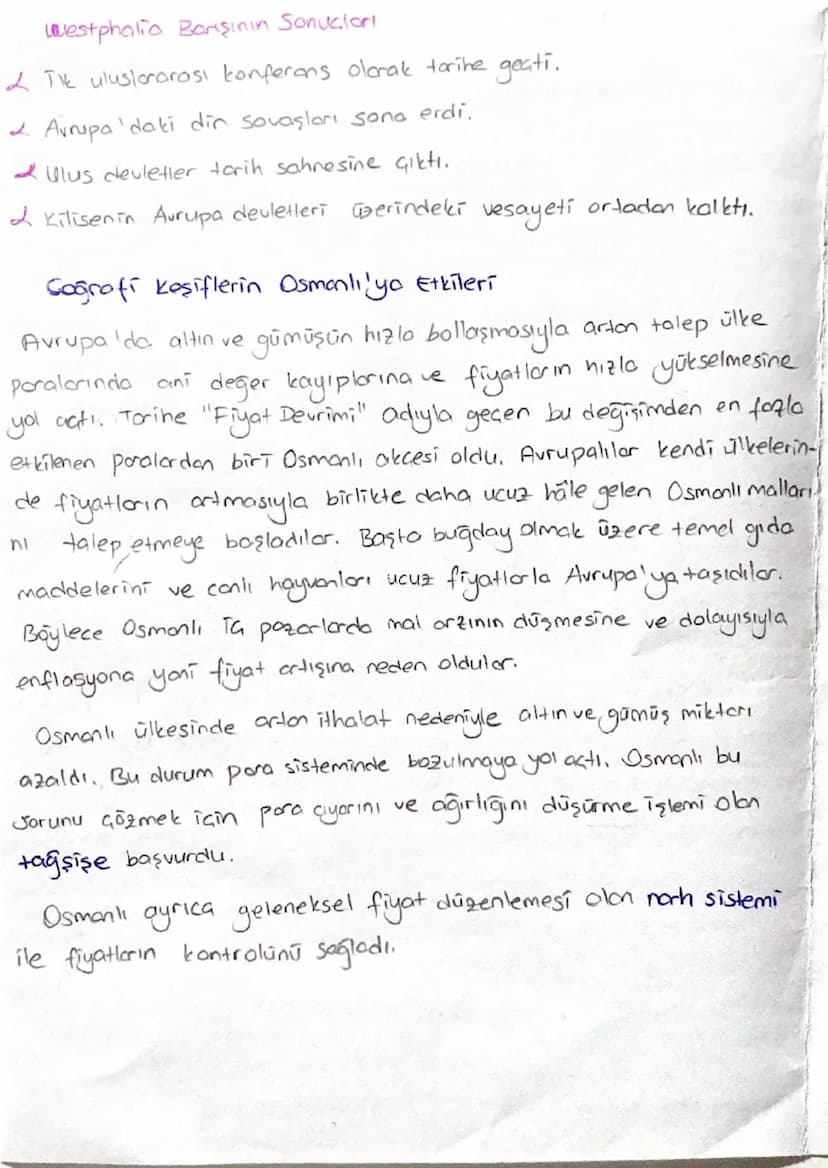 Westphalia Barışının Sonuçları
İlk uluslararası konferans olarak tarihe geçti.
Avrupa'daki din savaşları sona erdi.
Ulus devletler tarih sahnesine çıktı.
Kilisenin Avrupa devletleri üzerindeki vesayeti ortadan kalktı.
Coğrafi Keşiflerin Osmanlı'ya Etkileri
Avrupa'da altın ve gümüşün hızla bollaşmasıyla artan talep ülke
paralarında ani değer kayıplarına ve fiyatların hızla yükselmesine
yol açtı. Tarihe "Fiyat Devrimi" adıyla geçen bu değişimden en fazla
etkilenen paralardan biri Osmanlı akçesi oldu. Avrupalılar kendi ülkelerin-
de fiyatların artmasıyla birlikte daha ucuz hâle gelen Osmanlı malları
nı talep etmeye başladılar. Başta buğday olmak üzere temel gıda
maddelerini ve canlı hayvanları ucuz fiyatlarla Avrupa'ya taşıdılar.
Böylece Osmanlı iç pazarlarda mal arzının düşmesine ve dolayısıyla
enflasyona yani fiyat artışına neden oldular.
Osmanlı ülkesinde artan ithalat nedeniyle altın ve gümüş miktarı
azaldı. Bu durum para sisteminde bozulmaya yol açtı. Osmanlı bu
sorunu çözmek için para çıyarını ve ağırlığını düşürme işlemi olan
tağşişe başvurdu.
Osmanlı ayrıca geleneksel fiyat düzenlemesi olan narh sistemi
ile fiyatların kontrolünü sağladı.